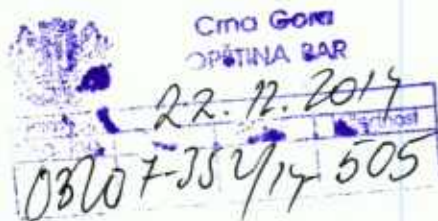 Crna Gora
OPŠTINA BAR
22. 12. 2014
0320 7-352/14-505